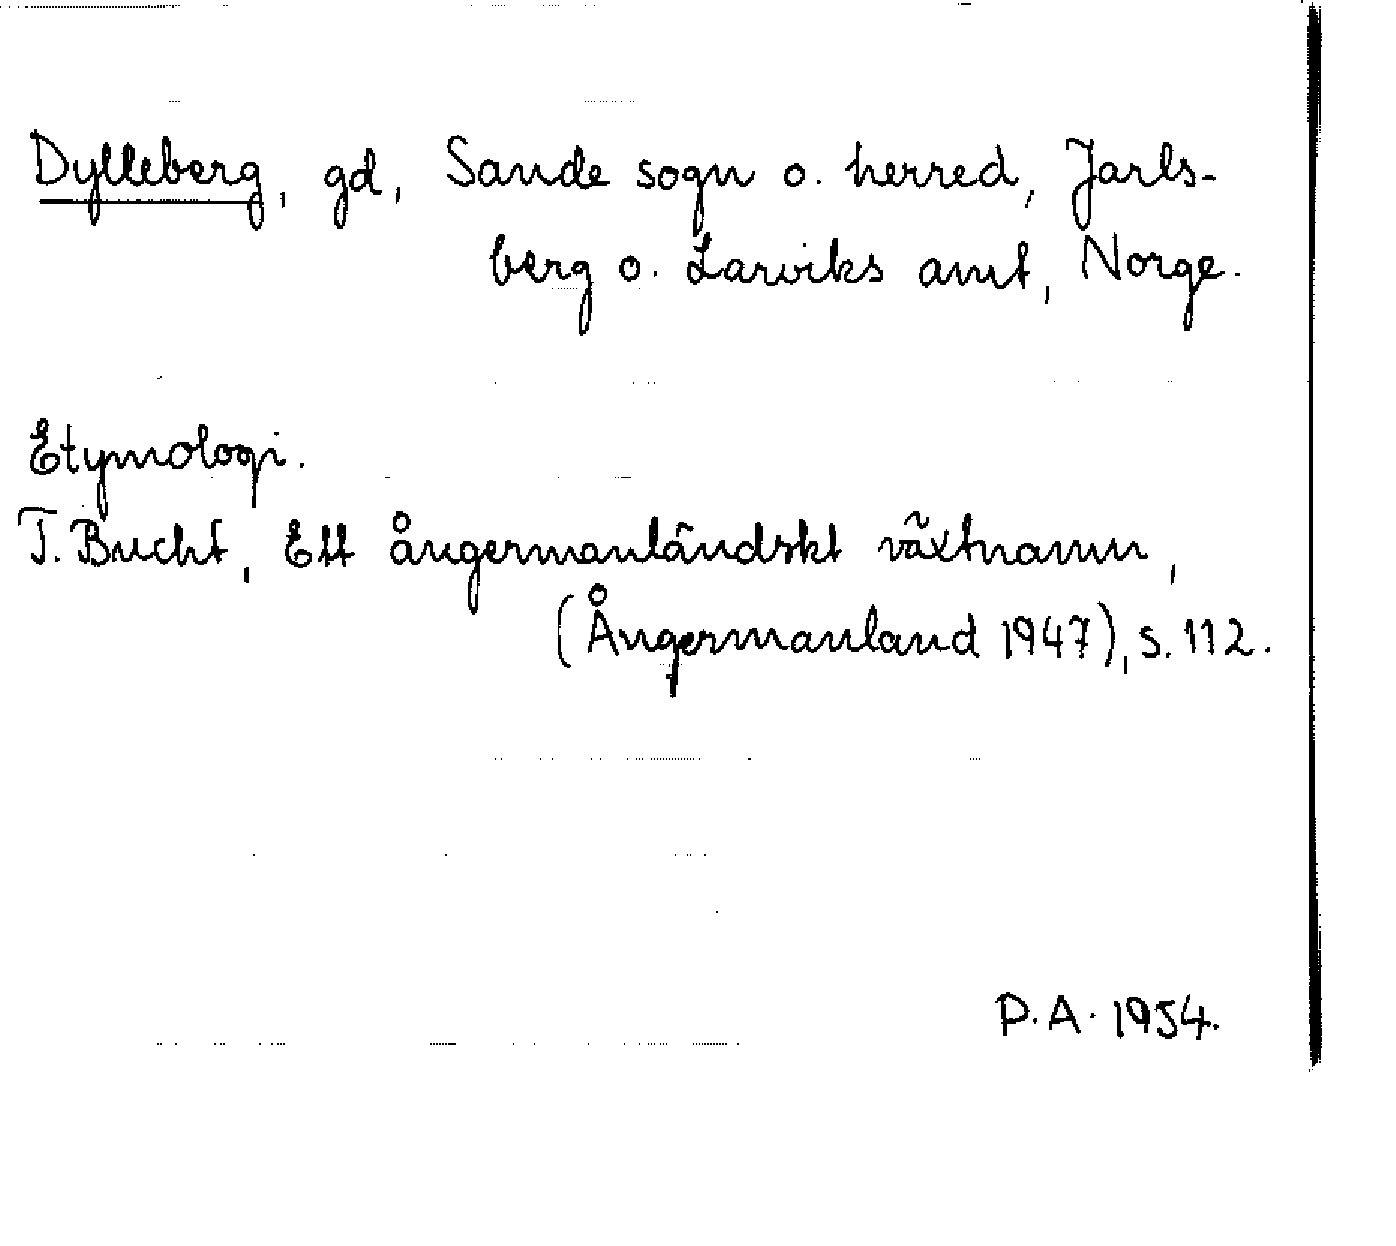 Dylleberg, gd, Sande sogn o. herred, Jarls-
berg o. Larviks amt, Norge.
Etymologi.
T. Bucht, Ett ångermanländskt växtnamn,
(Ångermanland 1947), s. 112.
P.A. 1954.